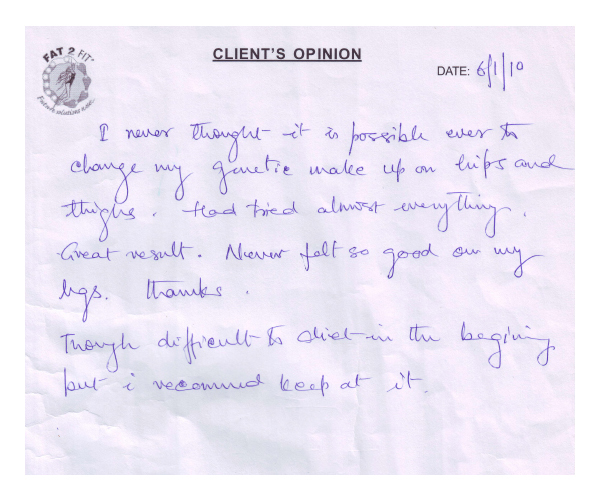 FAT 2 FIT
CLIENT'S OPINION
DATE: 6/1/10
I never thought it is possible ever to
change my genetic make up on hips and
thighs. Had tried almost everything.
Great result. Never felt so good on my
legs. thanks.
Though difficult to diet in the begining
but i recommed keep at it.